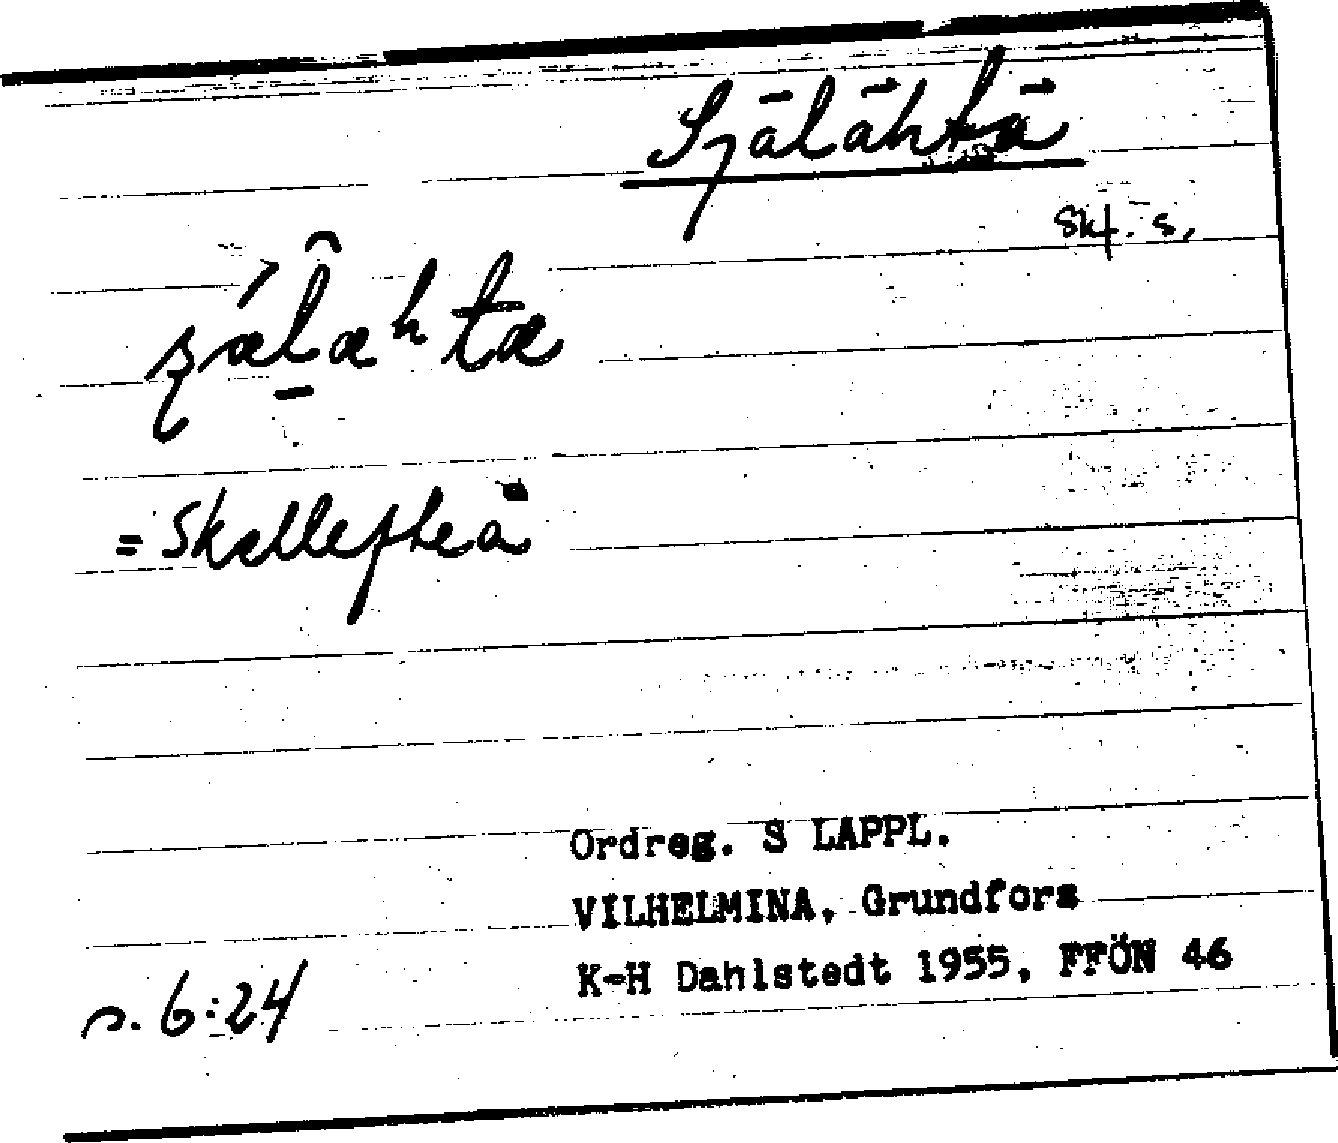 Själähtä
Skf. s.
= Skellefteå
Ordreg. S LAPPL.
VILHELMINA, Grundfors
K-H Dahlstedt 1955, FFÖN 46
s. 6:24